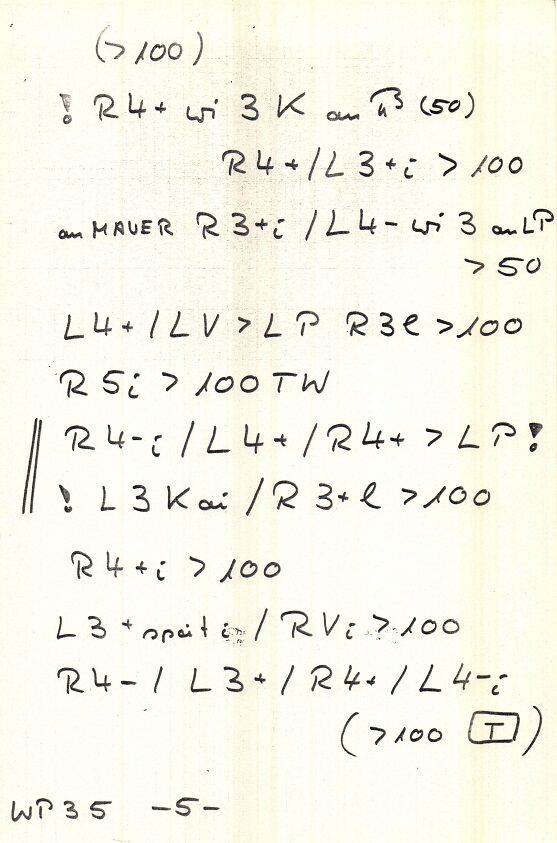 (>100)
! R4+ wi 3 K an (50)
R4+/L3+i >100
an MAUER R3+i /L4- wi 3 an LP
>50
L4+/LV>LP R3l >100
R5i >100TW
R4-i /L4+/R4+ >LP!
! L3Kai/R3+l >100
R4+i >100
L3+ spät i / RVi >100
R4-/ L3+/R4+/L4-i
(>100 T)
WP35 -5-